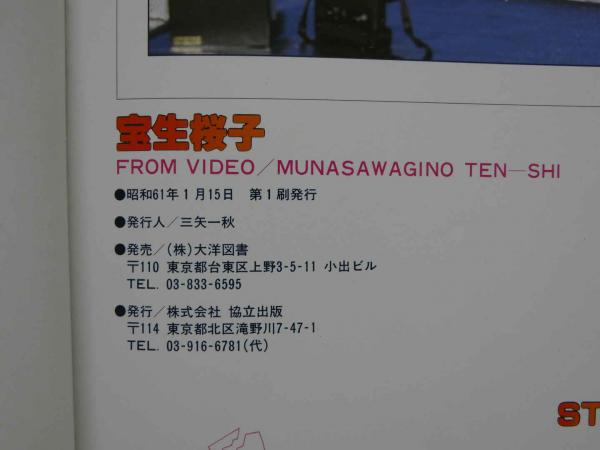 宝生桜子
FROM VIDEO/MUNASAWAGINO TEN—SHI
●昭和61年1月15日 第1刷発行
●発行人/三矢一秋
●発売/(株)大洋図書
〒110 東京都台東区上野3-5-11 小出ビル
TEL. 03-833-6595
●発行/株式会社 協立出版
〒114 東京都北区滝野川7-47-1
TEL. 03-916-6781(代)
ST